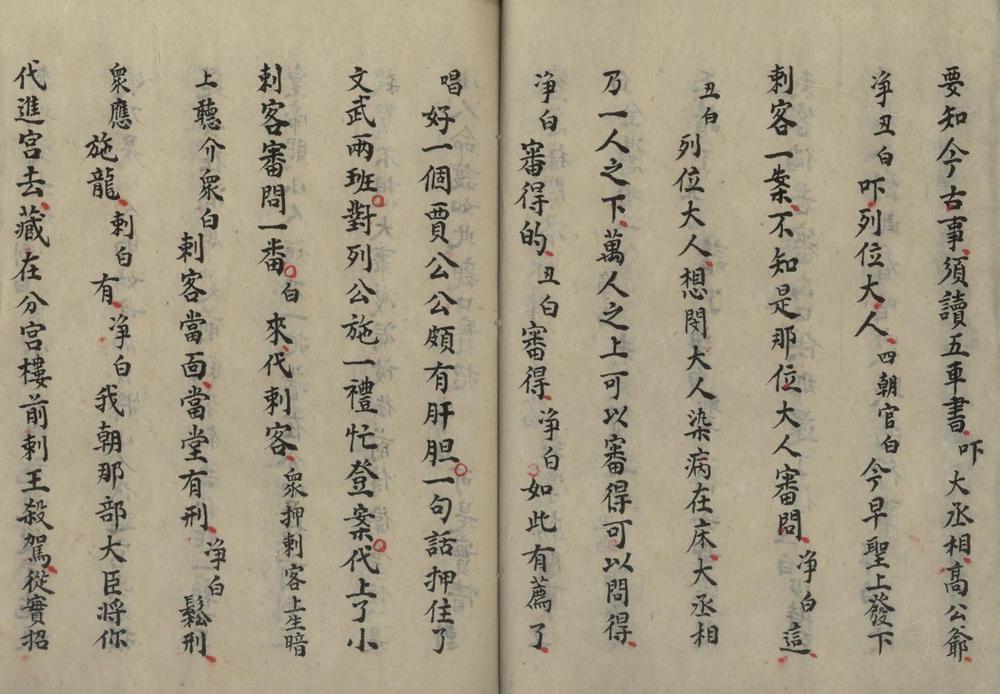 要知今古事須讀五車書吓大丞相高公爺
净丑白吓列位大人四朝官白今早聖上發下
刺客一案不知是那位大人審問净白這
丑白列位大人想閔大人染病在床大丞相
乃一人之下萬人之上可以審得可以問得
净白審得的丑白審得净白如此有薦了
唱好一個賈公公頗有肝胆一句話押住了
文武兩班對列公施一禮忙登案代上了小
刺客審問一番白來代刺客衆押刺客上生暗
上聽介衆白刺客當面當堂有刑净白鬆刑
衆應施龍刺白有净白我朝那部大臣將你
代進宫去藏在分宫樓前刺王殺駕從實招